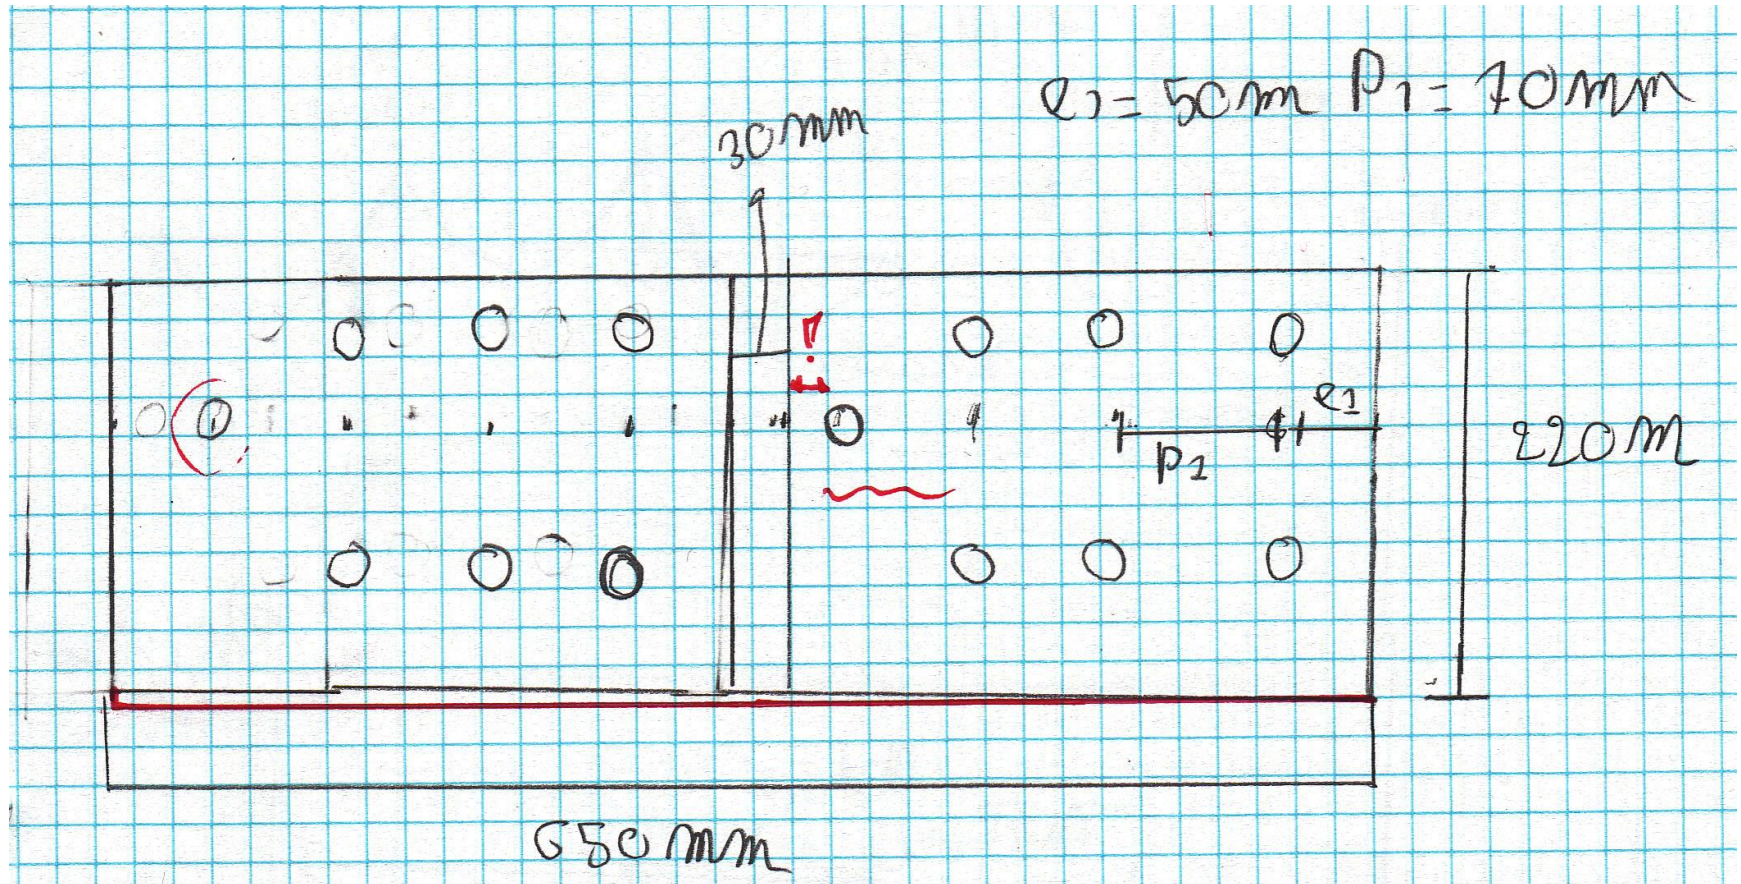 e1 = 50m P1 = 70mm
30mm
!
e1
P1
220m
650mm